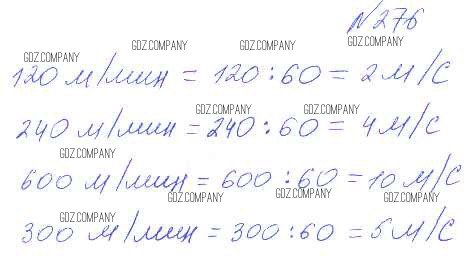 №276
GDZ.COMPANY GDZ.COMPANY GDZ.COMPANY
GDZ.COMPANY
120 м/мин = 120 : 60 = 2 м/с
GDZ.COMPANY GDZ.COMPANY
240 м/мин = 240 : 60 = 4 м/с
GDZ.COMPANY
600 м/мин = 600 : 60 = 10 м/с
GDZ.COMPANY GDZ.COMPANY GDZ.COMPANY
GDZ.COMPANY
300 м/мин = 300 : 60 = 5 м/с